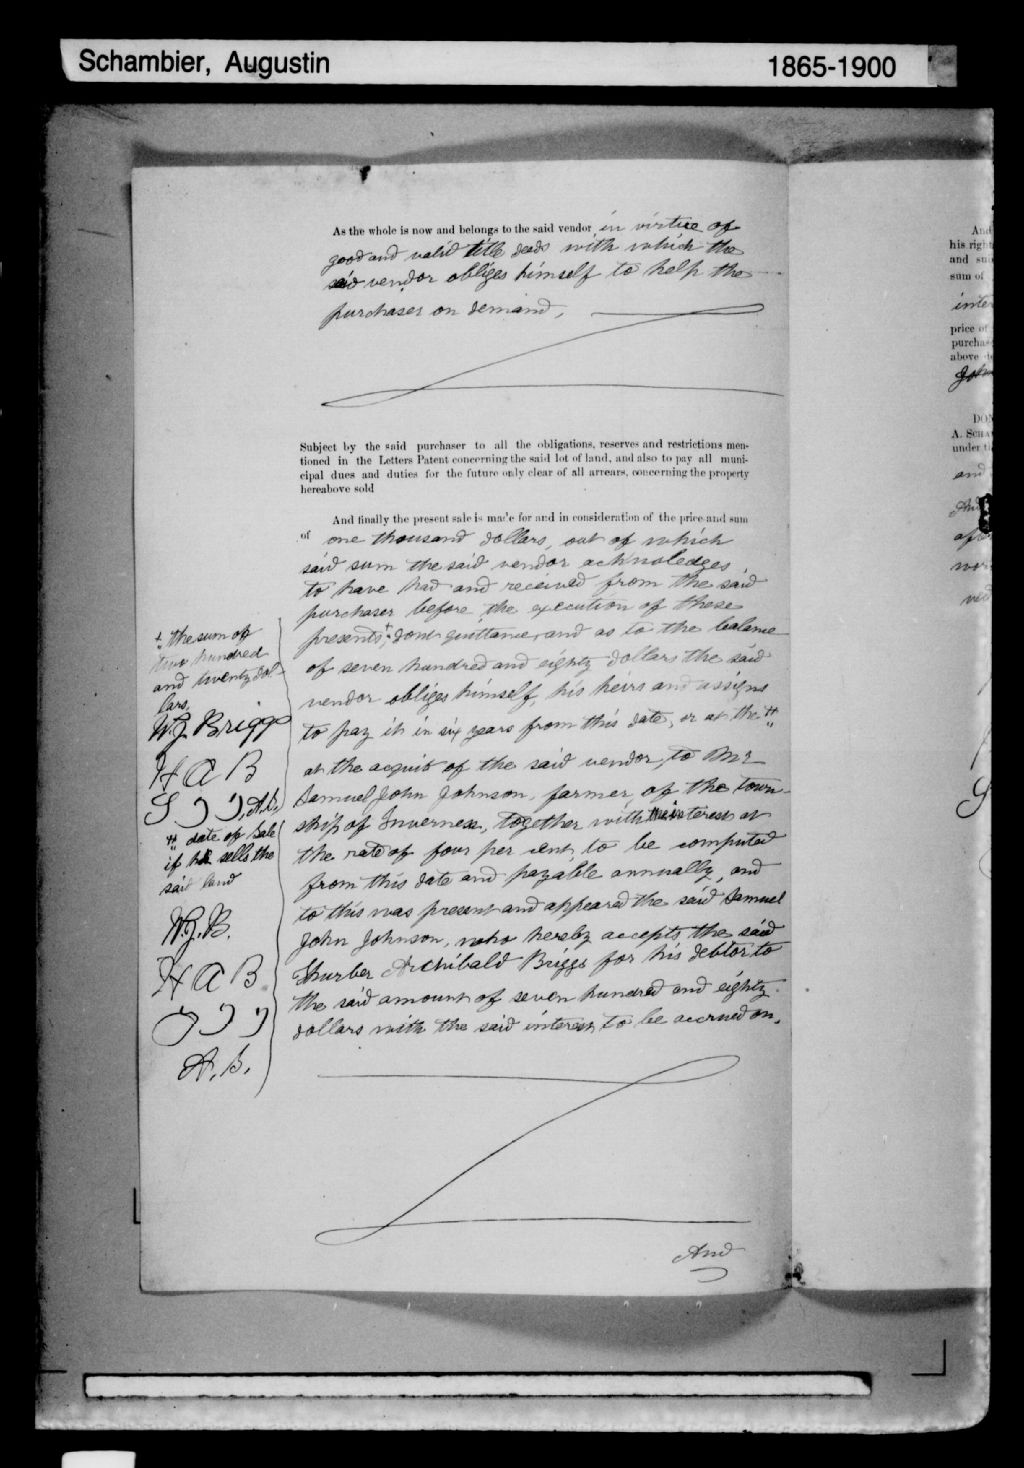 Schambier, Augustin
1865-1900
As the whole is now and belongs to the said vendor in virtue of
good and valid title deeds with which the
said vendor obliges himself to help the
purchaser on demand,
Subject by the said purchaser to all the obligations, reserves and restrictions men-
tioned in the Letters Patent concerning the said lot of land, and also to pay all muni-
cipal dues and duties for the future only clear of all arrears, concerning the property
hereabove sold
And finally the present sale is made for and in consideration of the price and sum
of one thousand dollars, out of which
said sum the said vendor acknoledges
to have had and received from the said
purchaser before the execution of these
presents,+ dont quittance, and as to the balance
of seven hundred and eighty dollars the said
vendor obliges himself, his heirs and assigns
to pay it in six years from this date, or at the #
at the acquit of the said vendor, to Mr
Samuel John Johnson, farmer of the town-
ship of Inverness, together with interest at
the rate of four per cent, to be computed
from this date and payable annually, and
to this was present and appeared the said Samuel
John Johnson, who hereby accepts the said
Thurber Archibald Briggs for his debtor to
the said amount of seven hundred and eighty
dollars with the said interest to be accrued on.
And
+ the sum of
two hundred
and twenty dol-
lars,
W.J. Briggs
H A B
S J J, A.S.
# date of sale
if he sells the
said land
W.J.B.
H A B
S J J
A.S.
And
his right
and
sum of
price of
purchas
above
A. SCHA
under
and